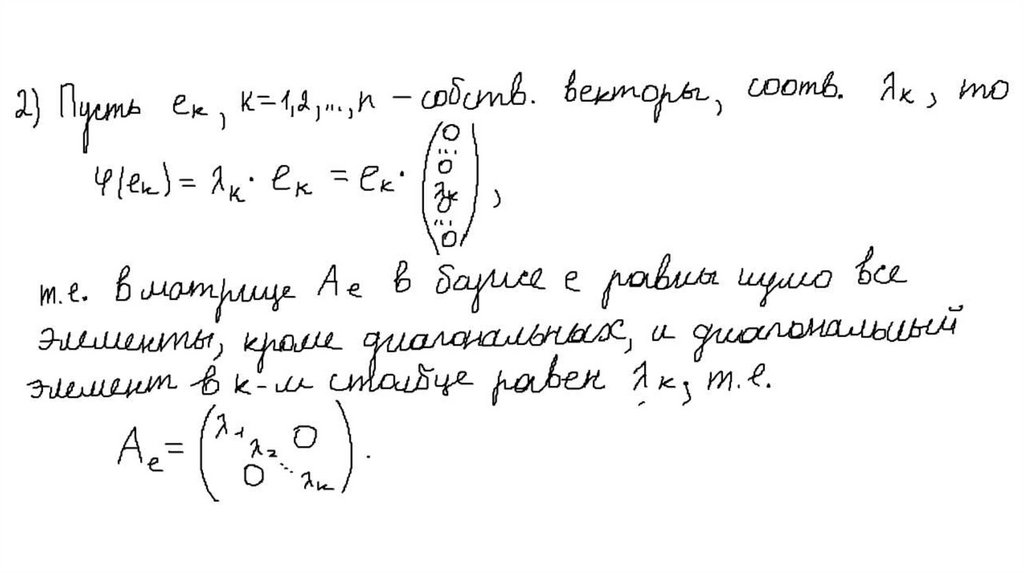 2) Пусть eₖ, к=1,2,...,n – собств. векторы, соотв. λₖ, то
φ(eₖ) = λₖ · eₖ = eₖ · (0 ... 0 λₖ 0 ... 0),
т.е. в матрице Aₑ в базисе e равны нулю все
элементы, кроме диагональных, и диагональный
элемент в к-м столбце равен λₖ, т.е.
Aₑ = (λ₁ λ₂ 0 0 ... λₖ).